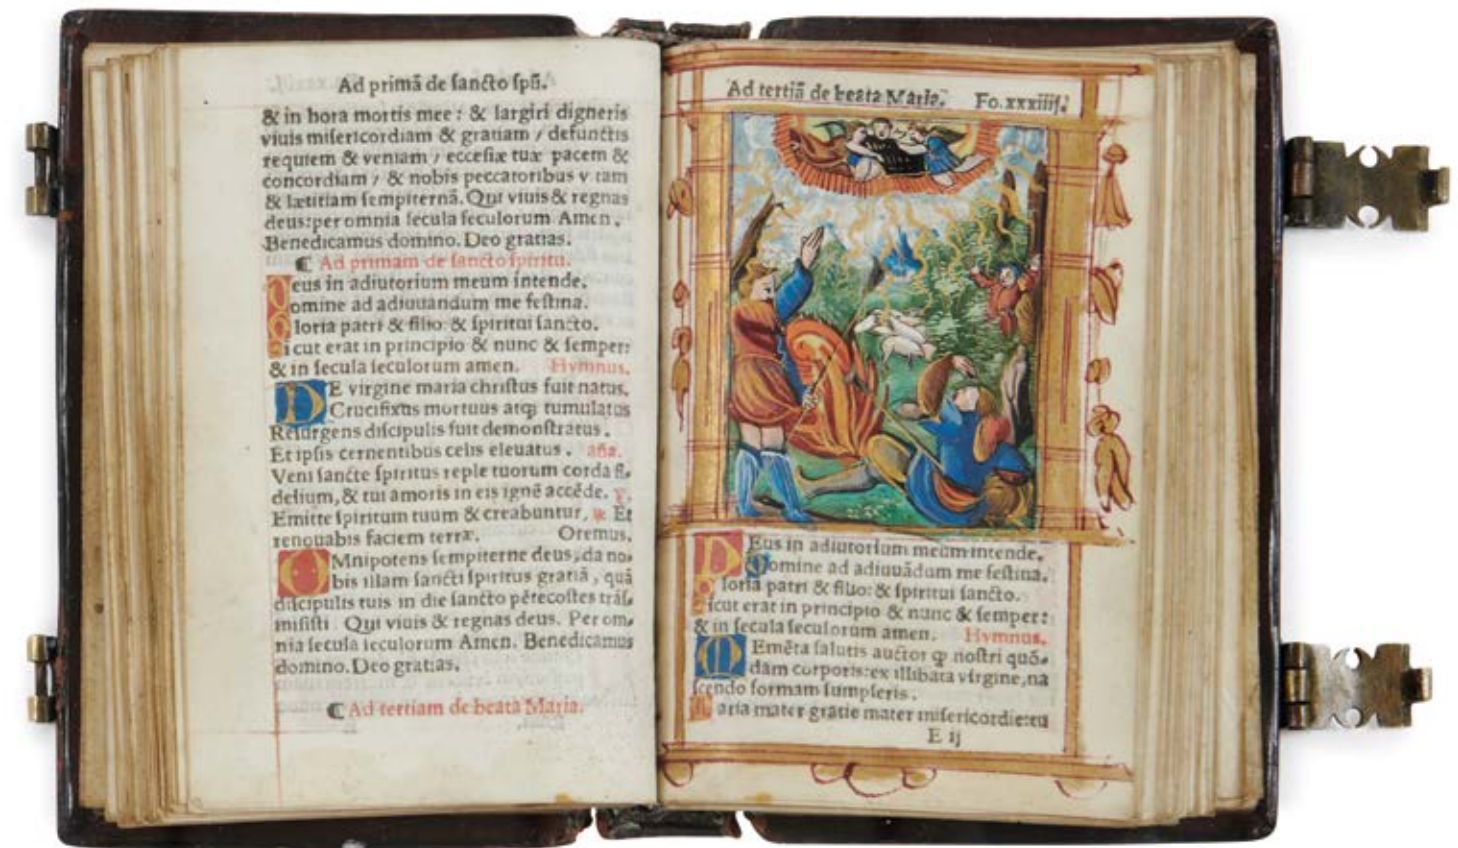 Ad primã de sancto spũ.
& in hora mortis mee : & largiri digneris
viuis misericordiam & gratiam / defunctis
requiem & veniam / ecclesiæ tuæ pacem &
concordiam / & nobis peccatoribus vitam
& lætitiam sempiternã. Qui viuis & regnas
deus: per omnia secula seculorum Amen.
Benedicamus domino. Deo gratias.
¶ Ad primam de sancto spiritu.
Deus in adiutorium meum intende.
Domine ad adiuuandum me festina.
Gloria patri & filio: & spiritui sancto.
Sicut erat in principio & nunc & semper:
& in secula seculorum amen. Hymnus.
DE virgine maria christus fuit natus.
Crucifixus mortuus atqꝫ tumulatus
Resurgens discipulis fuit demonstratus.
Et ipsis cernentibus celis eleuatus. añã.
Veni sancte spiritus reple tuorum corda fi-
delium, & tui amoris in eis ignẽ accẽde. ỹ.
Emitte spiritum tuum & creabuntur, ℟ Et
renouabis faciem terræ. Oremus.
OMnipotens sempiterne deus, da no-
bis illam sancti spiritus gratiã, quã
discipulis tuis in die sancto pẽtecostes trãs-
misisti Qui viuis & regnas deus. Per om-
nia secula seculorum Amen. Benedicamus
domino. Deo gratias.
¶ Ad tertiam de beata Maria.
Ad tertiã de beata Maria. Fo. xxxiiij.
DEus in adiutorium meum intende.
Domine ad adiuuãdum me festina.
Gloria patri & filio: & spiritui sancto.
Sicut erat in principio & nunc & semper:
& in secula seculorum amen. Hymnus.
MEmẽto salutis auctor ꝙ nostri quõ-
dam corporis: ex illibata virgine, na
scendo formam sumpseris.
Maria mater gratie mater misericordie: tu
E ij